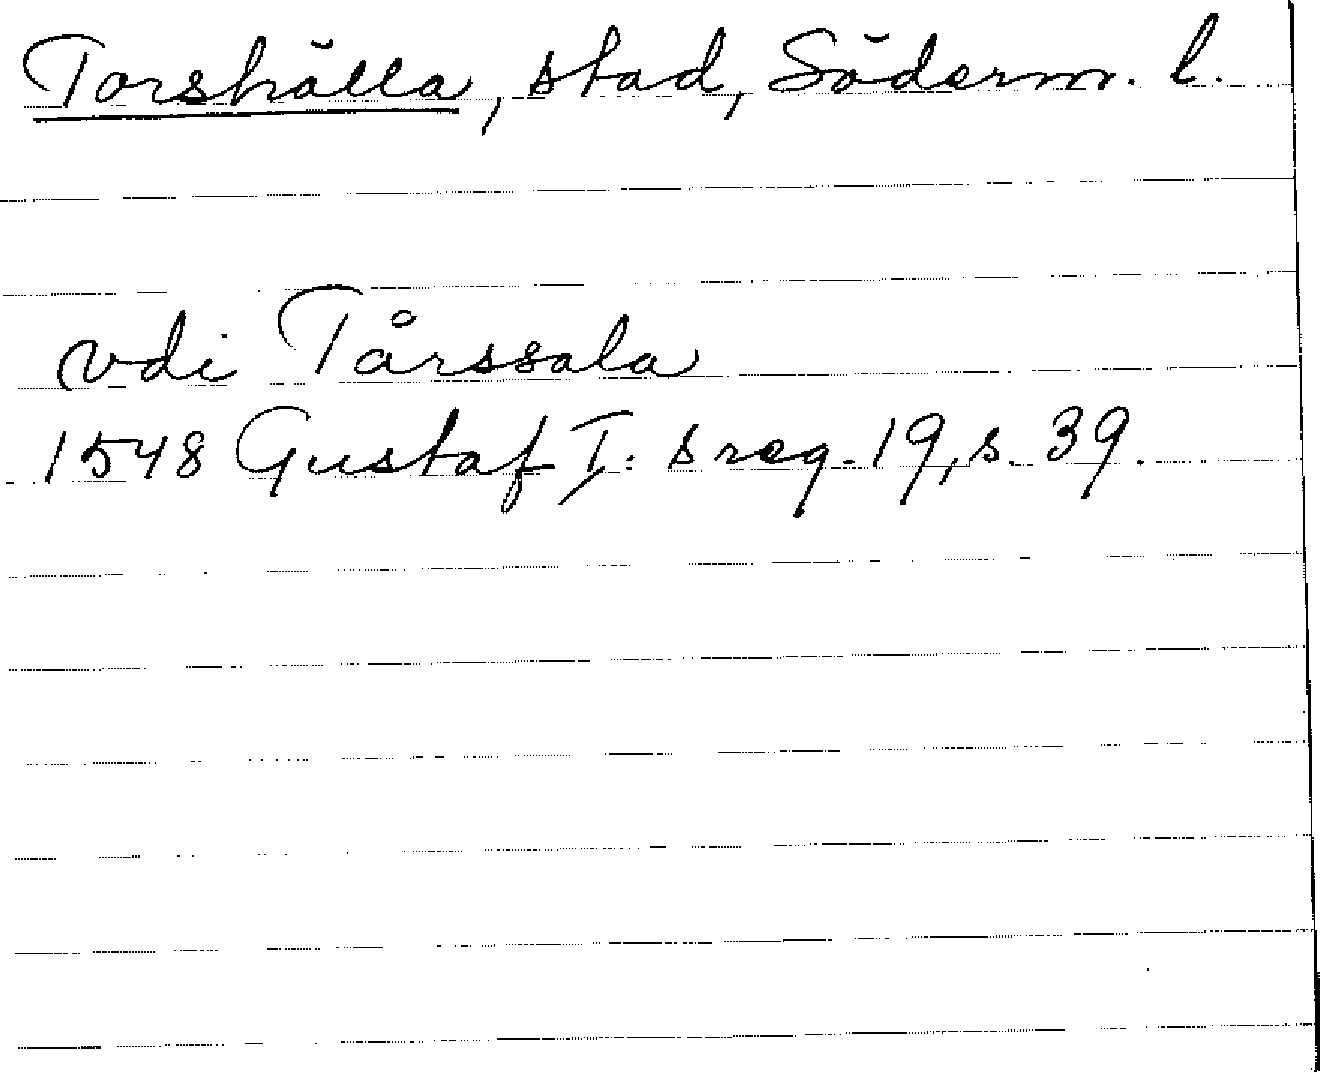 Torshälla, stad, Söderm. l.
vdi Tårssala
1548 Gustaf I: s reg. 19, s. 39.